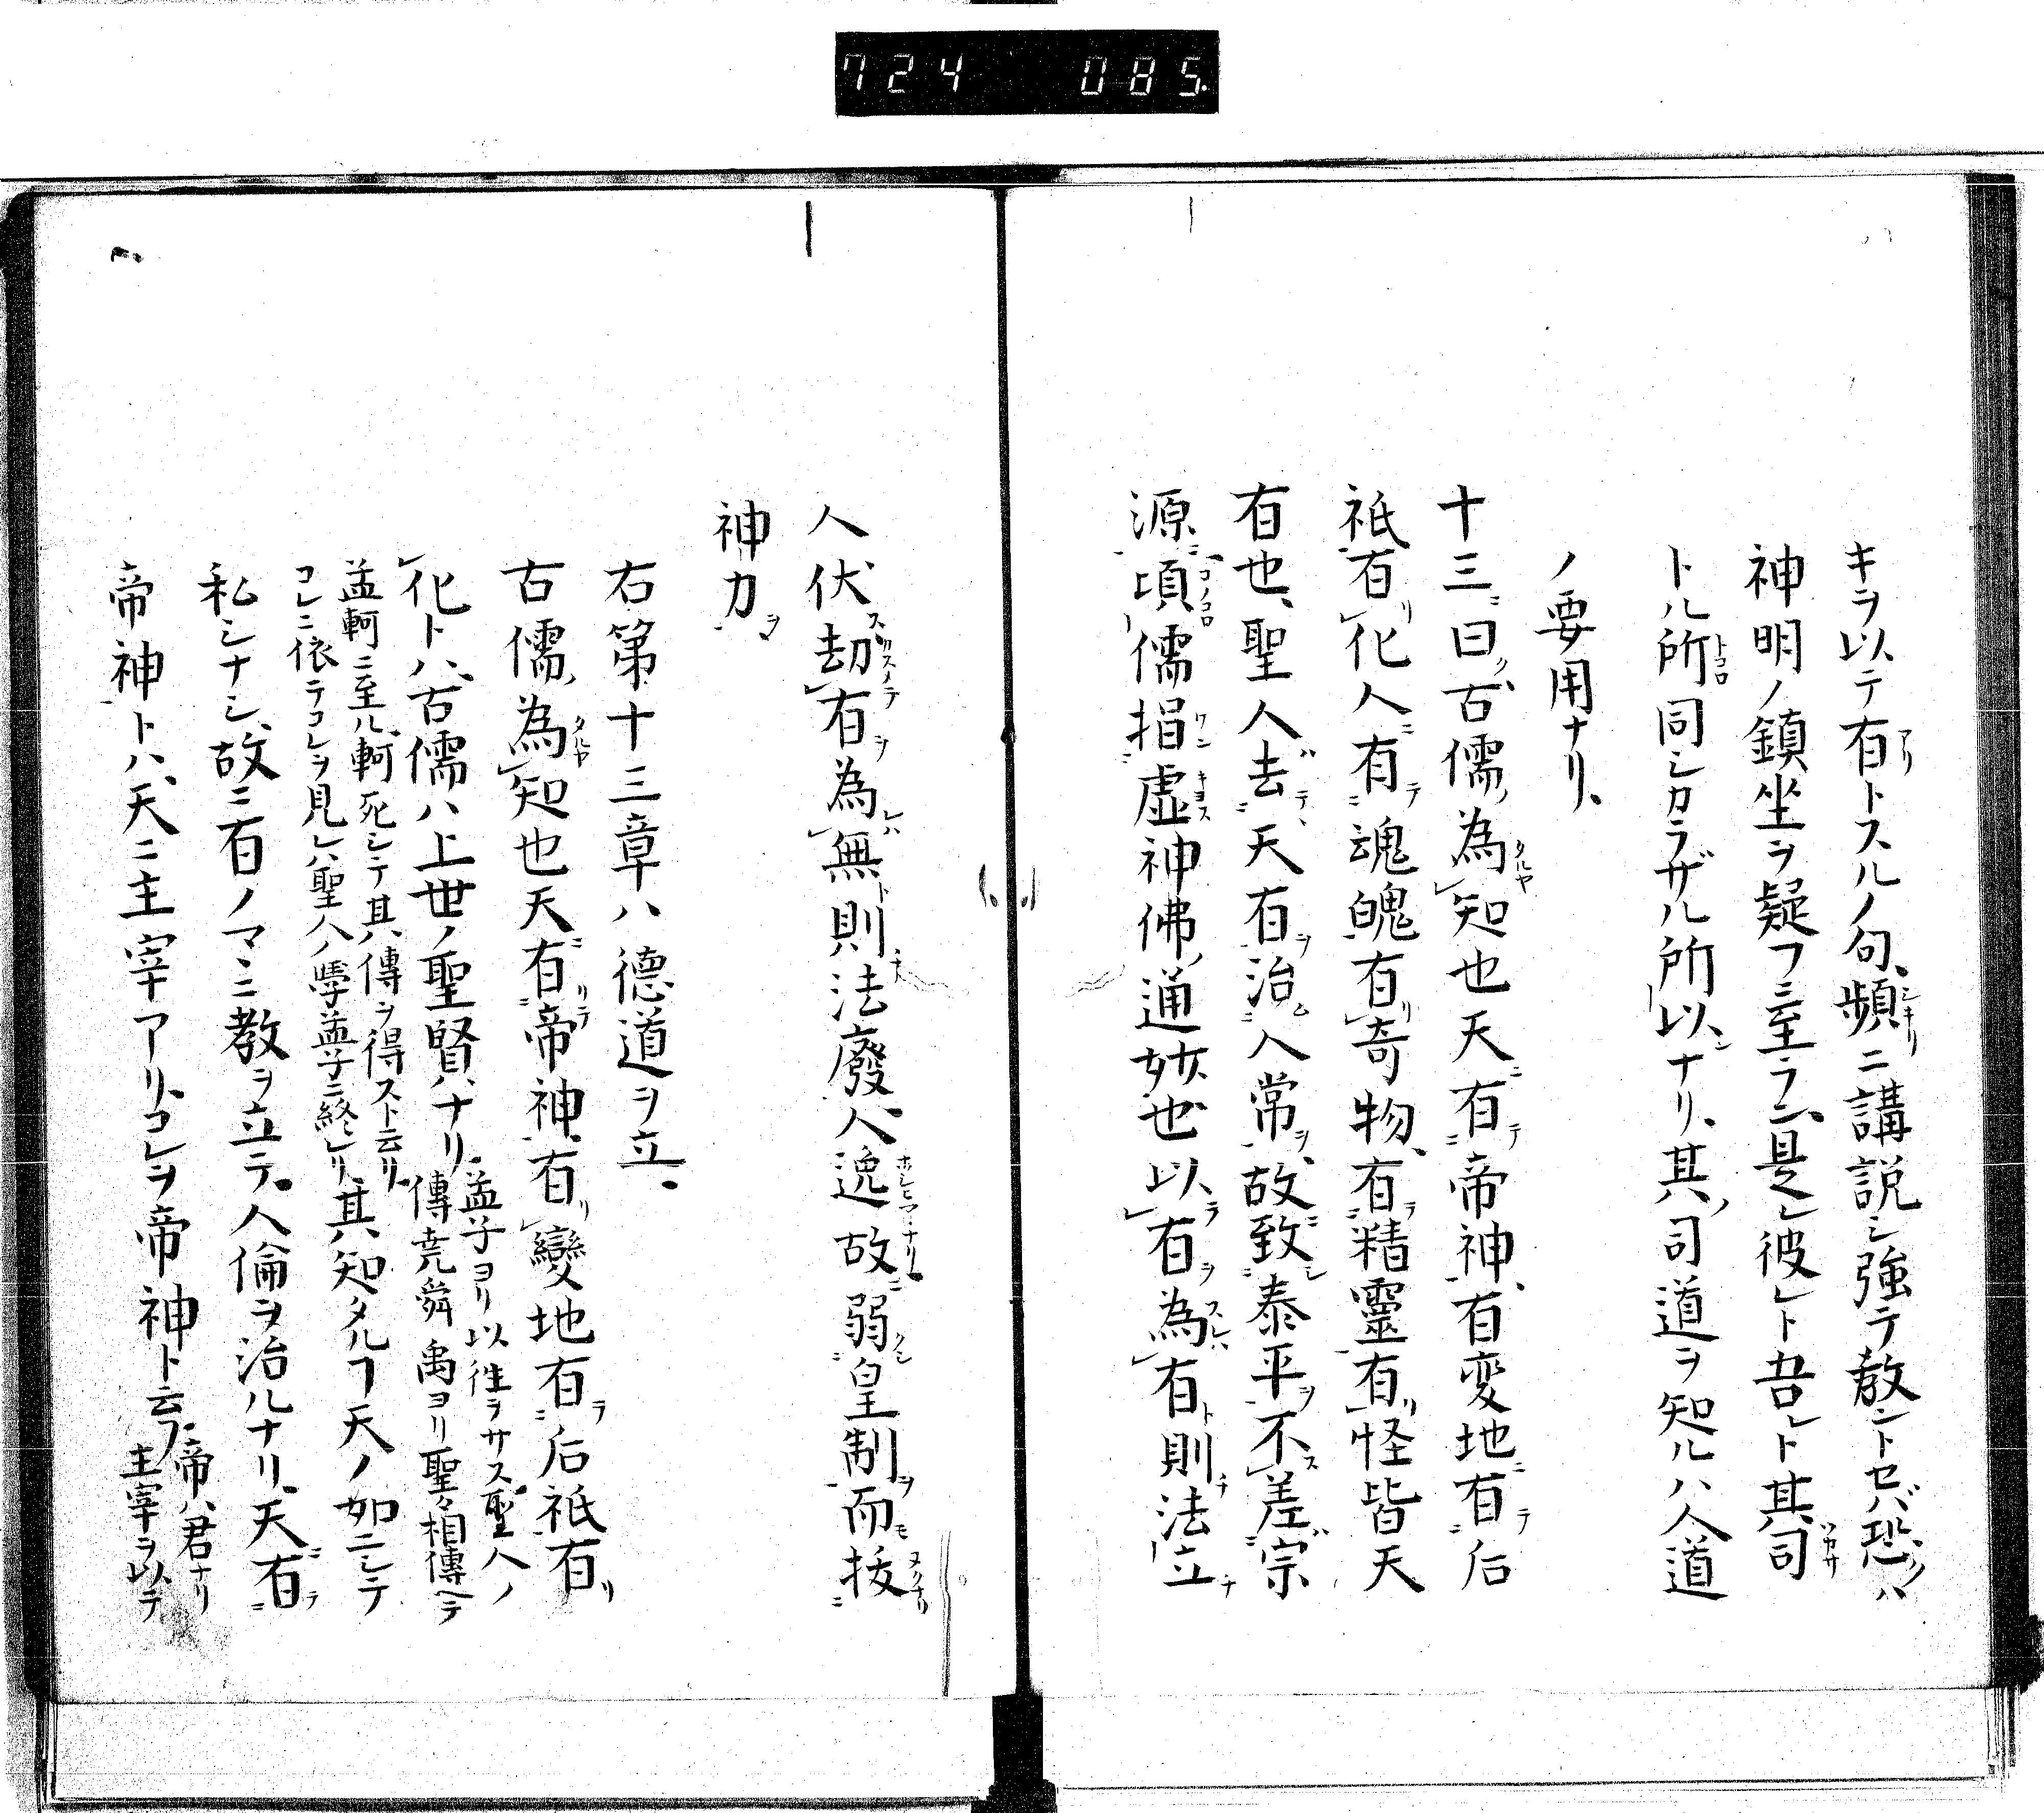 724 085
キヲ以テ有トスルノ句、頻ニ講説シ強テ教ントセバ恐クハ
神明ノ鎮坐ヲ疑フニ至ラン、是レ彼レト吾レト其司
トル所同シカラザル所以ナリ、其ノ司道ヲ知ルハ人道
ノ要用ナリ、
十三ニ曰ク、古儒ノ為知也天有帝神、有変地有后
祇有化人有魂魄有奇物、有精靈有怪皆天
有也、聖人去天有治人常、故致泰平不差宗
源頃儒捐虚神佛、通妖也以有為有則法立
人伏、劫有為無則法廢人逸故弱皇制而拔
神力
右第十三章ハ德道ヲ立
古儒ノ為知也天有帝神、有變地有后祇有
化トハ、古儒ハ上世ノ聖賢ナリ、孟子ヨリ以往ヲサス聖人ノ
傳堯舜禹ヨリ聖々相傳ヘテ
孟軻ニ至ル、軻死シテ其傳ヲ得スト云リ、
コレニ依テコレヲ見レハ聖人ノ學孟子ニ終レリ、其知タルヿ天ノ如ニシテ
私シナシ、故ニ有ノマヽニ教ヲ立テ、人倫ヲ治ルナリ、天有
帝神トハ、天ニ主宰アリ、コレヲ帝神ト云フ、帝ハ君ナリ
主宰ヲ以テ